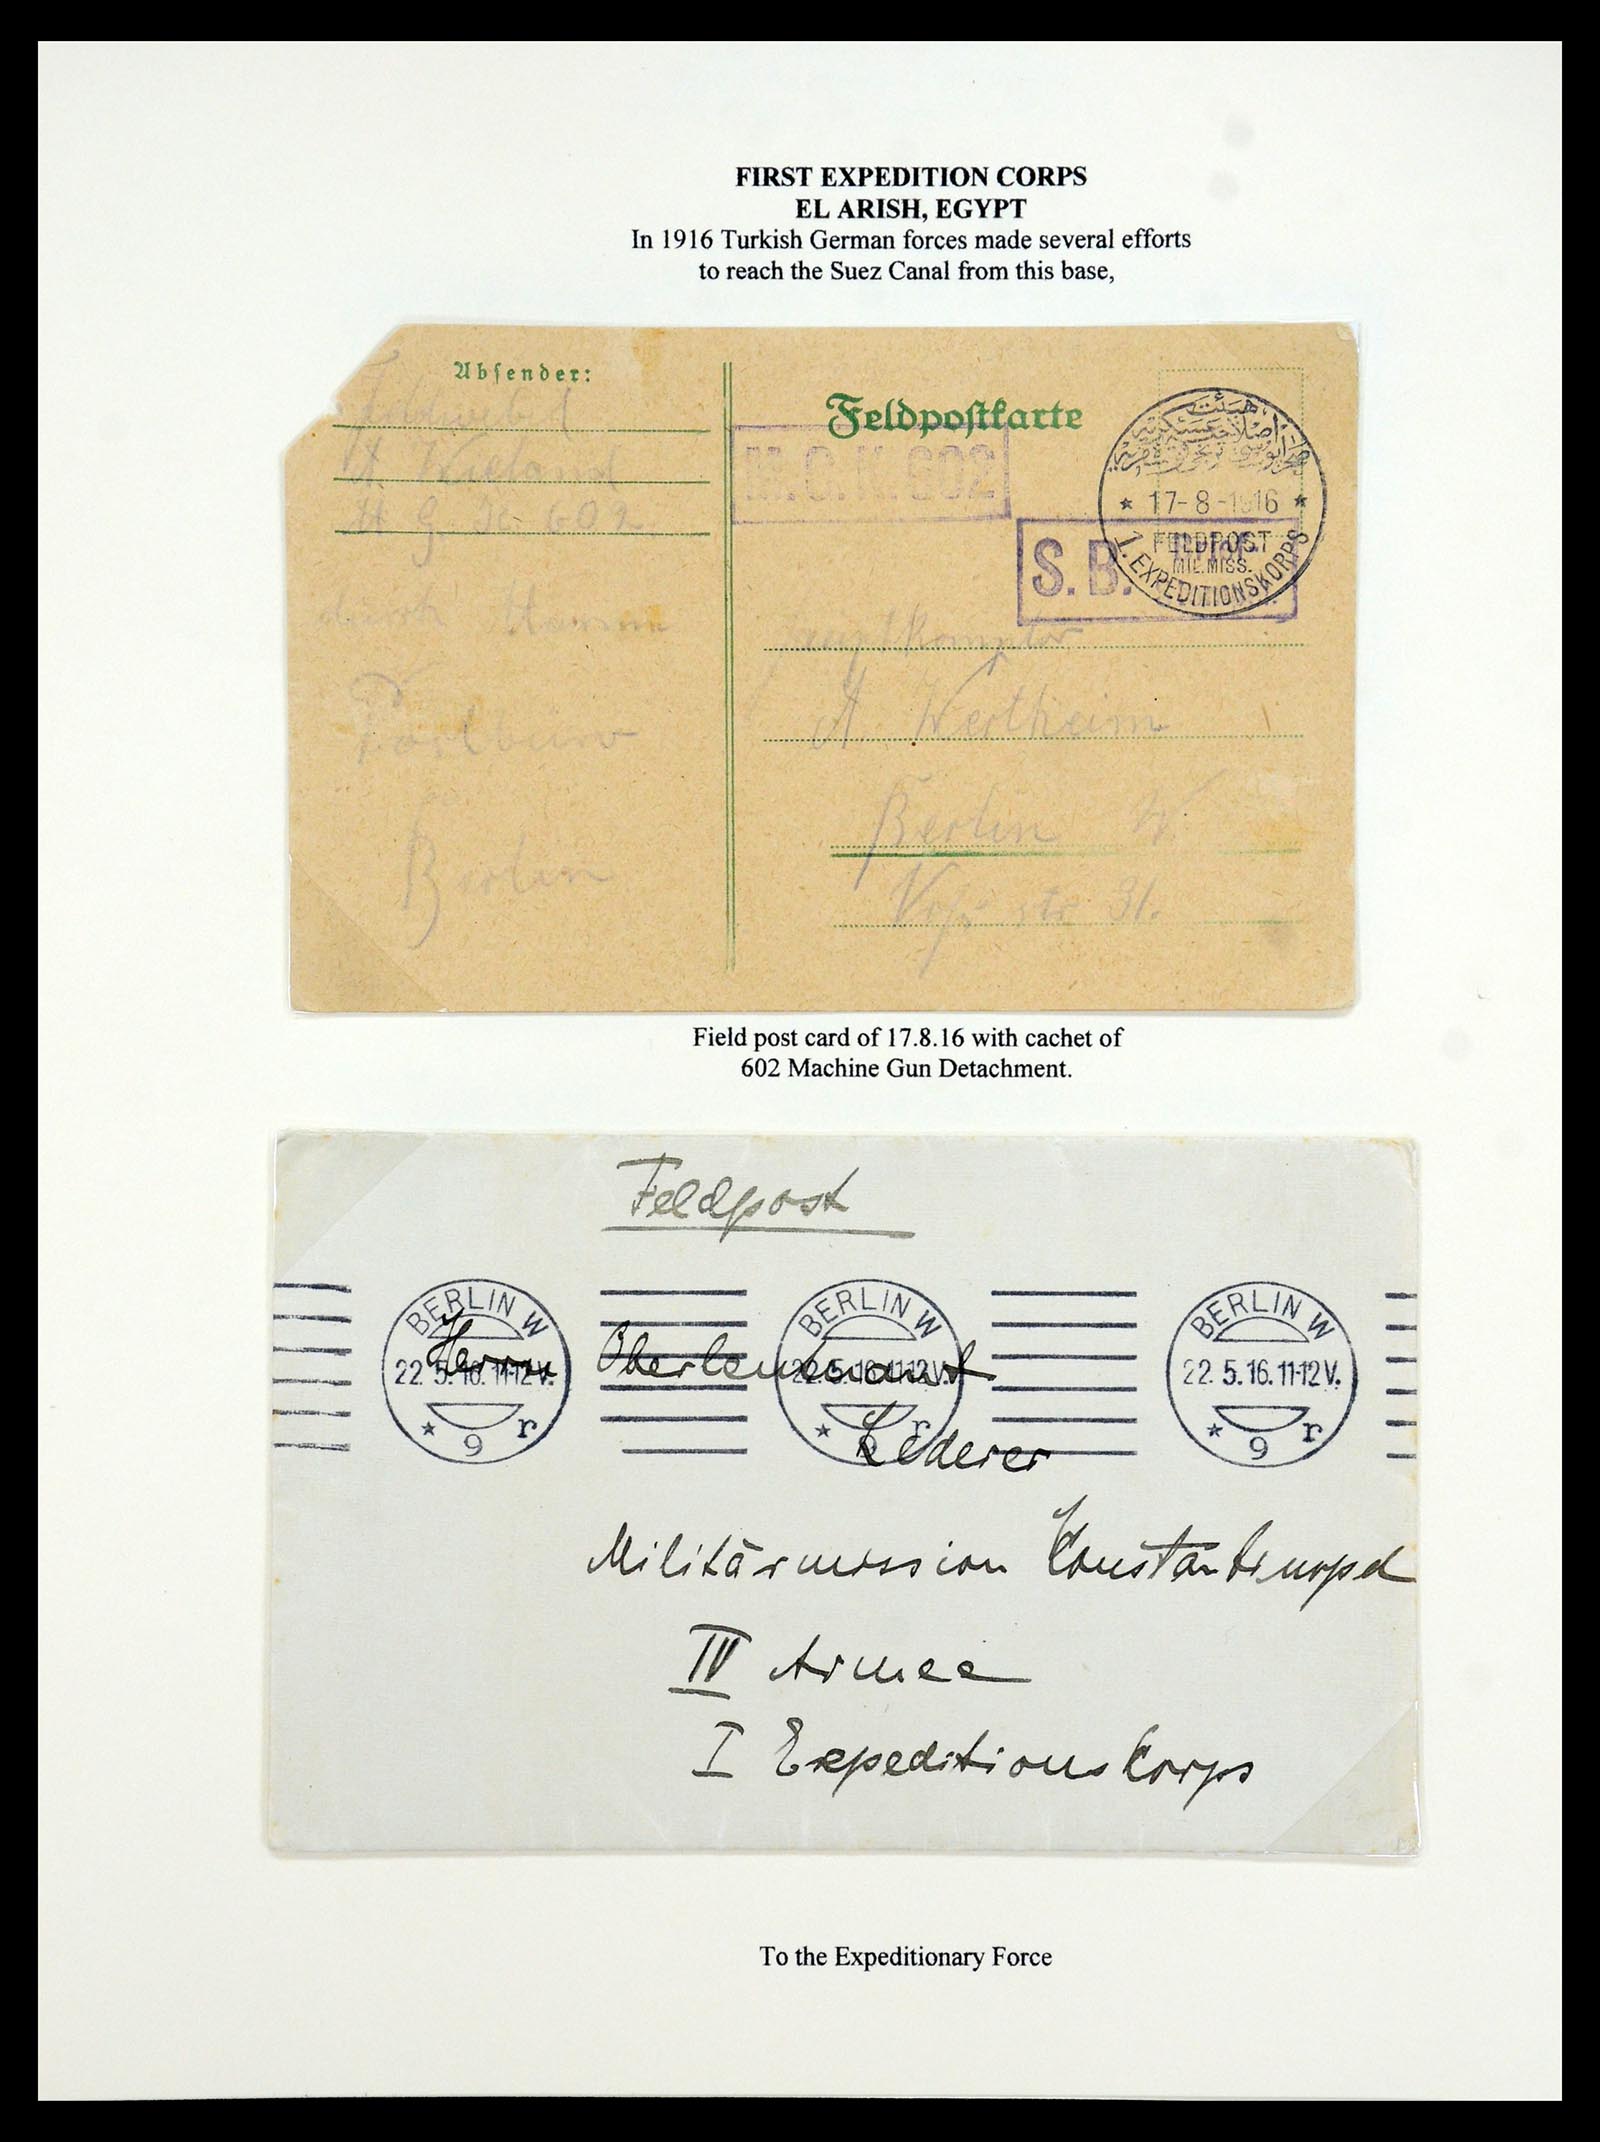 FIRST EXPEDITION CORPS
EL ARISH, EGYPT
In 1916 Turkish German forces made several efforts
to reach the Suez Canal from this base,
Absender:
Feldwebel
A Wieland
M G K 602
durch Marine
Postbüro
Berlin
Feldpostkarte
M.G.K. 602
هيئت
اصلاحيه عسكريه
* 17-8-1916 *
FELDPOST
MIL.MISS.
1. EXPEDITIONSKORPS
S.B.
Hauptkomptor
A Wertheim
Berlin W.
Voß str 31.
Field post card of 17.8.16 with cachet of
602 Machine Gun Detachment.
Feldpost
BERLIN W
22.5.16.11-12V.
* 9 r
BERLIN W
22.5.16.11-12V.
* 9 r
BERLIN W
22.5.16.11-12V.
* 9 r
Herrn Oberleutnant
Lederer
Militärmission Konstantinopel
IV Armee
I Expeditionskorps
To the Expeditionary Force